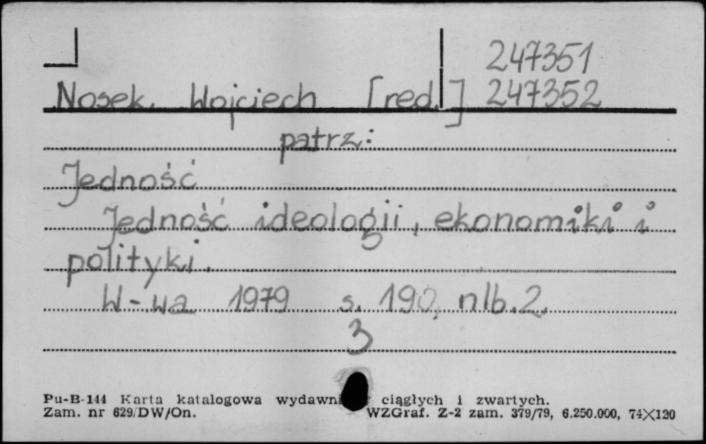 247351
Nosek, Wojciech [red.] 247352
patrz:
Jedność
Jedność ideologii, ekonomiki i
polityki.
W-wa 1979 s. 190, nlb. 2.
3
Pu-B-144 Karta katalogowa ciągłych i zwartych.
Zam. nr 629/DW/On. WZGraf. Z-2 zam. 379/79, 6.250.000, 74X120